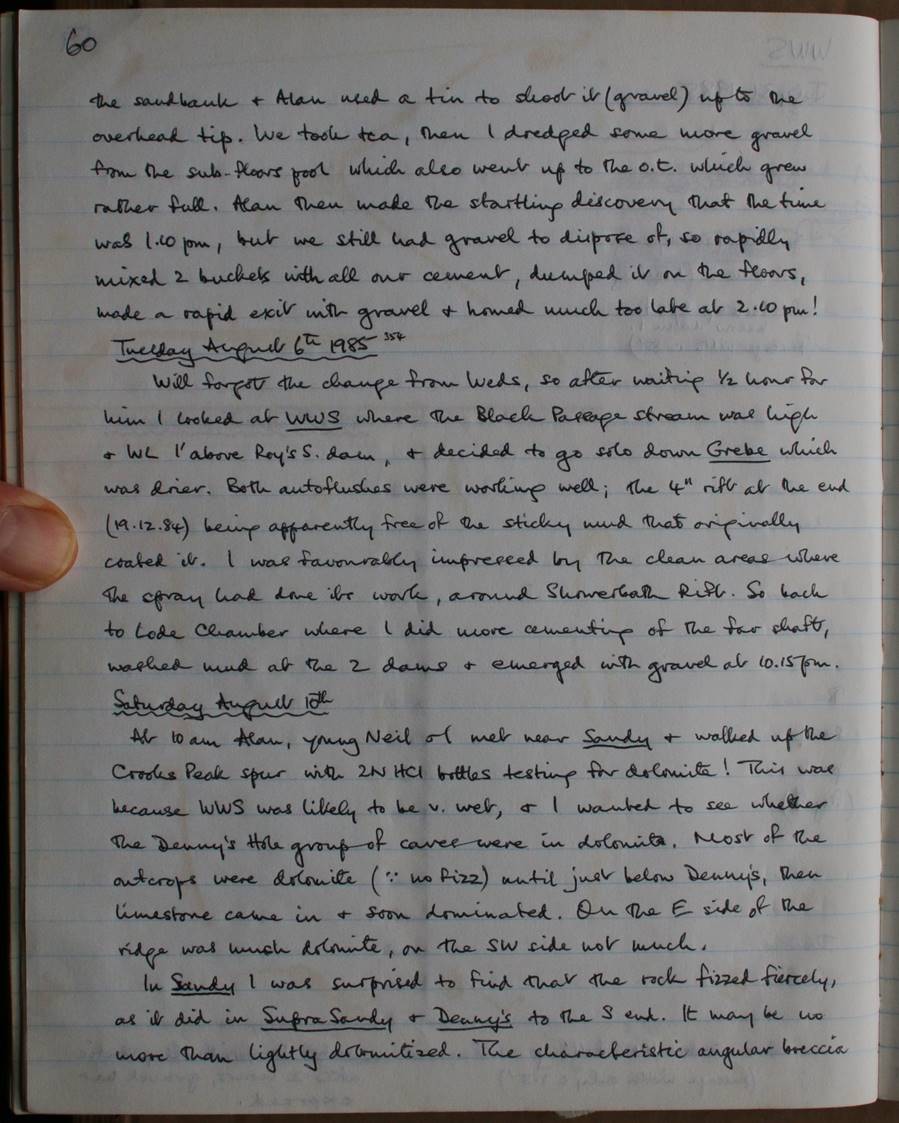 60
the sandbank + Alan used a tin to shoot it (gravel) up to the
overhead tip. We took tea, then I dredged some more gravel
from the sub-floors pool which also went up to the o.t. which grew
rather full. Alan then made the startling discovery that the time
was 1.10 pm, but we still had gravel to dispose of, so rapidly
mixed 2 buckets with all our cement, dumped it on the floors,
made a rapid exit with gravel + homed much too late at 2.10 pm!
Tuesday August 6th 1985 354
Will forgot the change from Weds, so after waiting 1/2 hour for
him I looked at WWS where the Black Passage stream was high
+ WL 1' above Roy's S. dam, + decided to go solo down Grebe which
was drier. Both autoflushes were working well; the 4" rift at the end
(19.12.84) being apparently free of the sticky mud that originally
coated it. I was favourably impressed by the clean areas where
the spray had done its work, around Showerbath Rift. So back
to Lode Chamber where I did more cementing of the far shaft,
washed mud at the 2 dams + emerged with gravel at 10.15 pm.
Saturday August 10th
At 10 am Alan, young Neil + I met near Sandy + walked up the
Crooks Peak spur with 2N HCl bottles testing for dolomite! This was
because WWS was likely to be v. wet, + I wanted to see whether
the Denny's Hole group of caves were in dolomite. Most of the
outcrops were dolomite (∵ no fizz) until just below Denny's, then
limestone came in + soon dominated. On the E side of the
ridge was much dolomite, on the SW side not much.
In Sandy I was surprised to find that the rock fizzed fiercely,
as it did in Supra Sandy + Denny's to the S end. It may be no
more than lightly dolomitized. The characteristic angular breccia